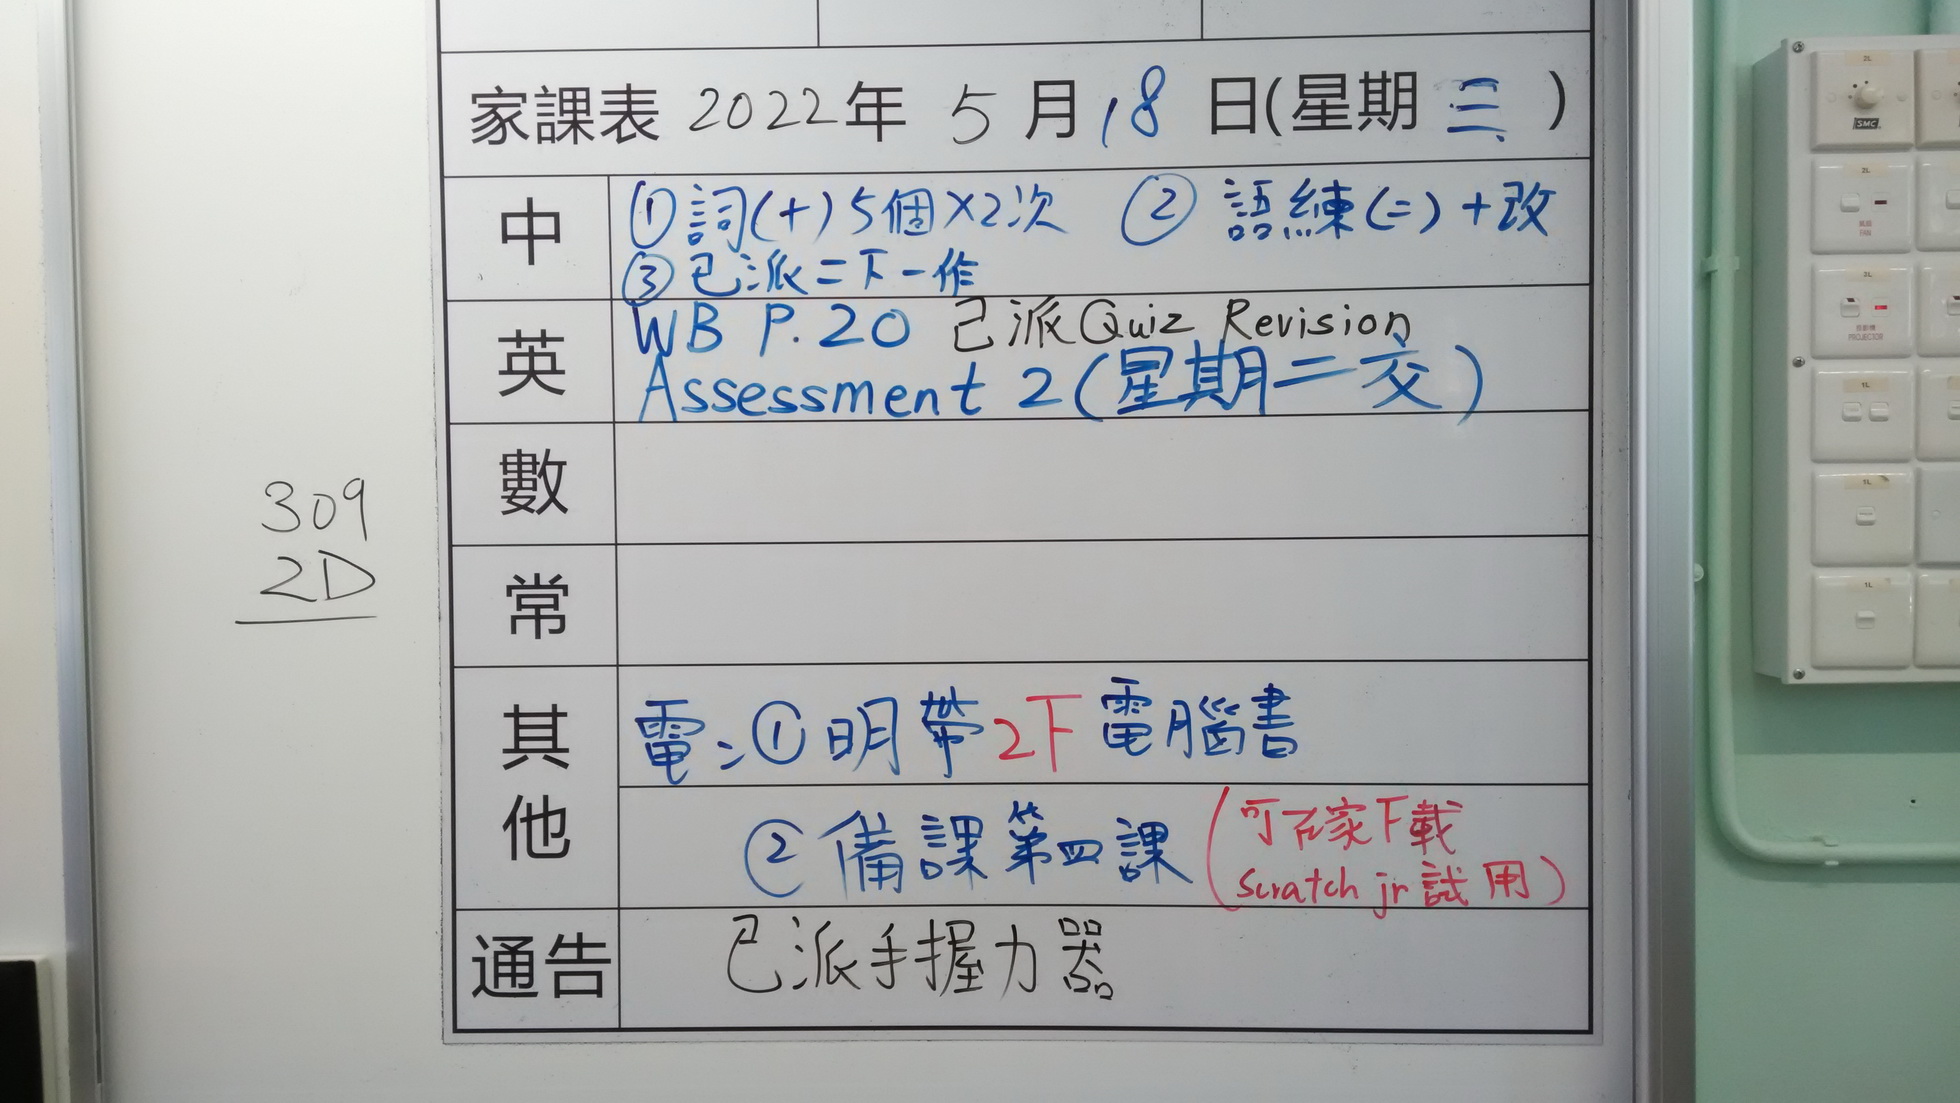 家課表 2022年 5月18日(星期三)
中
①詞(十)5個×2次 ②語練(二)+改
③已派二下一作
英
WB P.20 已派Quiz Revision
Assessment 2(星期二交)
數
常
309
2D
其他
電:①明帶2下電腦書
②備課第四課(可在家下載
Scratch jr 試用)
通告
已派手握力器
SMC
2L
2L
2L
PROJECTOR
1L
1L
1L